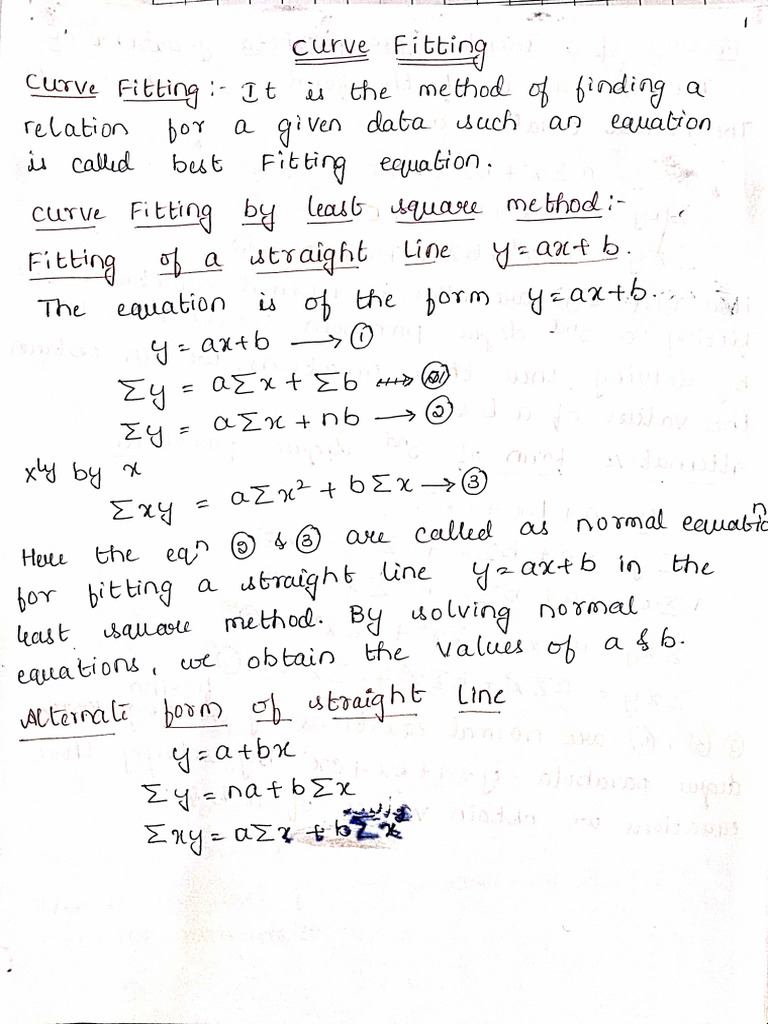 1
Curve Fitting
Curve Fitting:- It is the method of finding a
relation for a given data such an equation
is called best Fitting equation.
Curve Fitting by least square method:-
Fitting of a straight Line y=ax+b.
The equation is of the form y=ax+b.
y=ax+b → ①
Σy = aΣx + Σb
Σy = aΣx + nb → ②
xly by x
Σxy = aΣx² + bΣx → ③
Here the eqⁿ ② & ③ are called as normal equatiⁿ
for fitting a straight line y=ax+b in the
least square method. By solving normal
equations, we obtain the values of a & b.
Alternate form of straight Line
y=a+bx
Σy = na+bΣx
Σxy = aΣx + bΣx